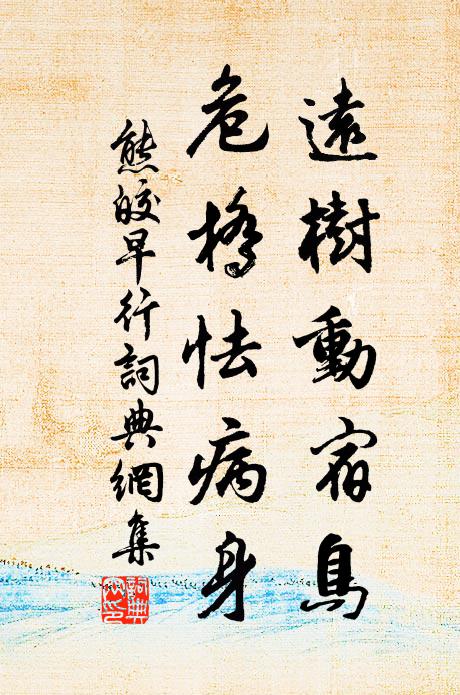 遠樹動宿鳥
危橋怯病身
熊皎早行詞典網集